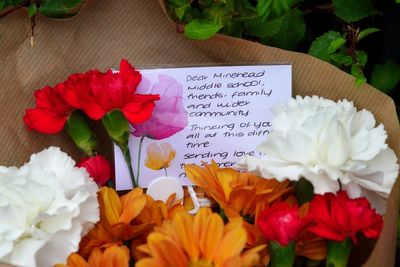 Dear Minehead
Middle school,
friends, family
and wider
community
Thinking of you
all at this diff
time.
sending love